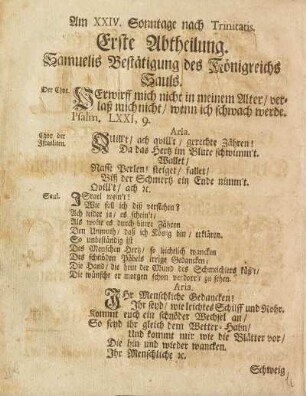 Am XXIV. Sonntage nach Trinitatis.
Erste Abtheilung.
Samuelis Bestätigung des Königreichs
Sauls.
Der Chor. VErwirff mich nicht in meinem Alter/ ver-
laß mich nicht/ wenn ich schwach werde.
Psalm. LXXI, 9.
Aria.
Chor der Israeliten. QUillt/ ach qvillt/ gerechte Zähren!
Da das Hertz im Blute schwimm't.
Wallet/
Nasse Perlen/ steiget/ fallet/
Biß der Schmertz ein Ende nimm't.
Qvill't/ ach ꝛc.
Saul. ISrael wein't!
Wie soll ich diß verstehen?
Ach leider ja/ es schein't/
Als wolte es durch
Den Unmuth/ daß ich König bin/ erklären.
So unbeständig ist
Des Menschen Hertz/ so leichtlich wancken
Des schnöden Pöbels irrige Gedancken;
Die Hand/ die heut der Mund des Schmeichlers küß't/
Die wünscht er morgen schon verdorr't zu sehen.
Aria.
IHr Menschliche Gedancken!
Ihr seyd/ wie leichtes Schilff und Rohr.
Kommt euch ein schnöder Wechsel an/
So seyd ihr gleich dem Wetter-Hahn/
Und kommt mir wie die Blätter vor/
Die hin und wieder wancken.
Ihr Menschliche ꝛc.
Schweig